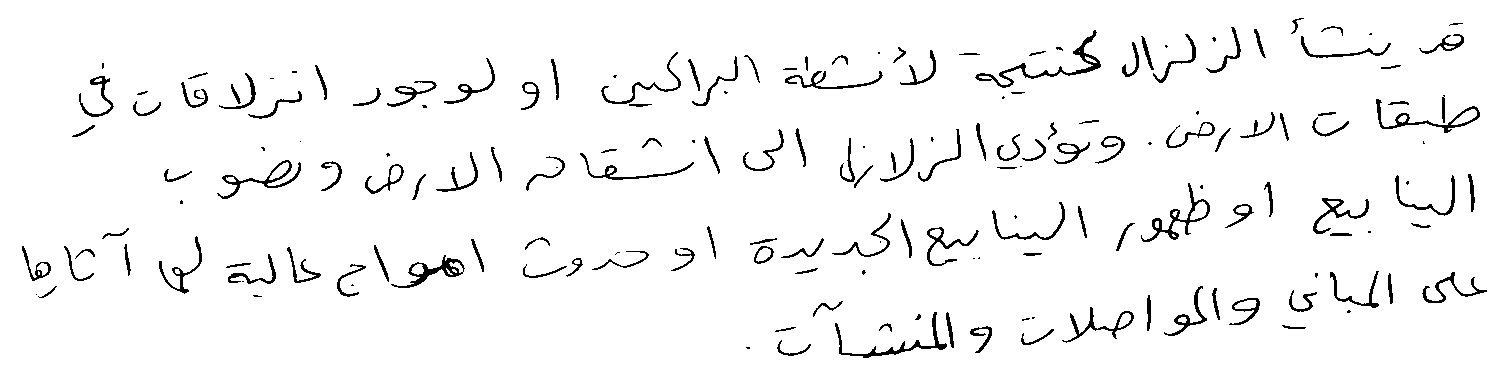 قد ينشأ الزلزال كنتيجة لأنشطة البراكين او لوجود انزلاقات في
طبقات الارض. وتؤدي الزلازل الى انشقاق الارض ونضوب
الينابيع او ظهور الينابيع الجديدة او حدوث امواج عالية لها آثارها
على المباني والمواصلات والمنشآت.